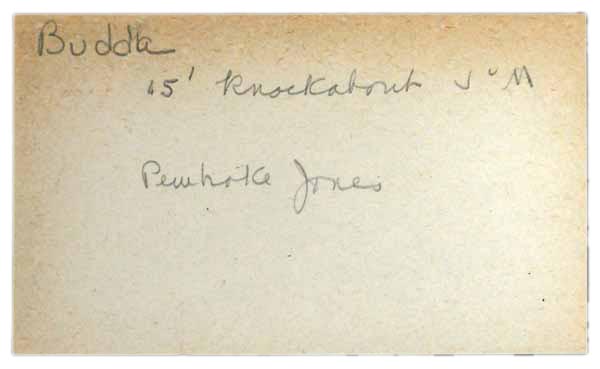 Budda
15' Knockabout
Pembroke Jones